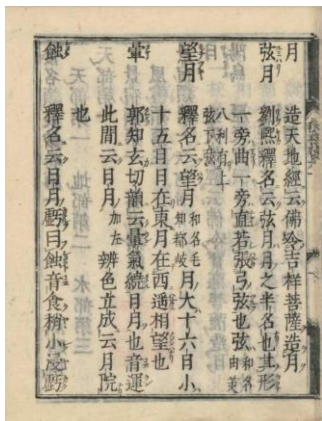 月 造天地經云佛令吉祥菩薩造月
弦月 劉熙釋名云弦月月之半名也其形
一旁曲一旁直若張弓弦也弦 和名由美
八利有上
弦下弦
望月 釋名云望月 和名毛知都岐 月大十六日小
十五日日在東月在西遥相望也
暈 郭知玄切韻云暈氣繞日月也音運
此間云日月 加左 辨色立成云月院
也
蝕 釋名云日月虧曰蝕音食稍小浸虧